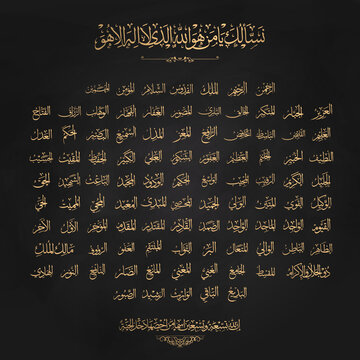 نسألك يا من هو الله الذي لا إله إلا هو
الرحمن الرحيم الملك القدوس السلام المؤمن المهيمن
العزيز الجبار المتكبر الخالق البارئ المصور الغفار القهار الوهاب الرزاق الفتاح
العليم القابض الباسط الخافض الرافع المعز المذل السميع البصير الحكم العدل
اللطيف الخبير الحليم العظيم الغفور الشكور العلي الكبير الحفيظ المقيت الحسيب
الجليل الكريم الرقيب المجيب الواسع الحكيم الودود المجيد الباعث الشهيد الحق
الوكيل القوي المتين الولي الحميد المحصي المبدئ المعيد المحيي المميت الحي
القيوم الواجد الماجد الواحد الصمد القادر المقتدر المقدم المؤخر الأول الآخر
الظاهر الباطن الوالي المتعال البر التواب المنتقم العفو الرؤوف مالك الملك
ذو الجلال والإكرام المقسط الجامع الغني المغني المانع الضار النافع النور الهادي
البديع الباقي الوارث الرشيد الصبور
إن لله تسعة وتسعين اسما من أحصاها دخل الجنة